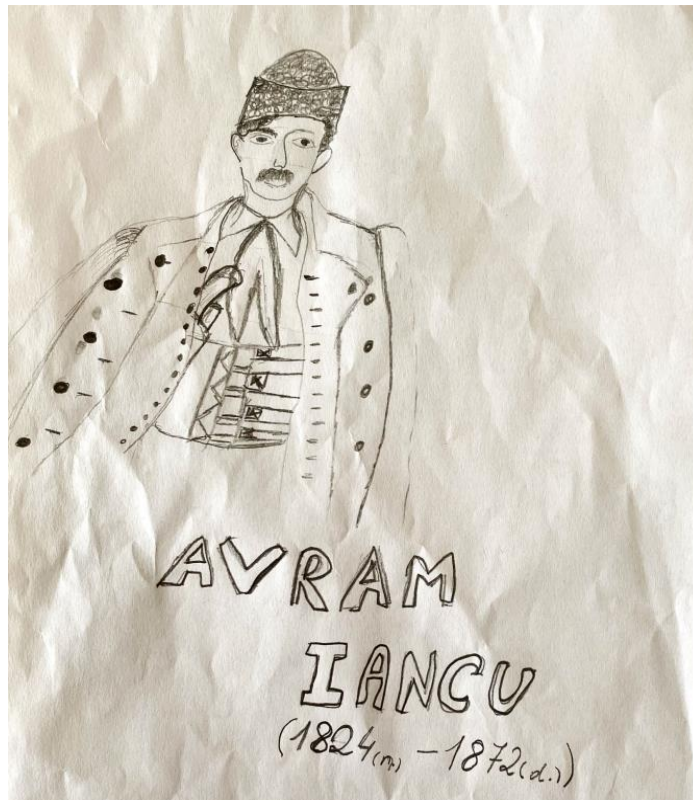 AVRAM
IANCU
(1824(n.) - 1872(d.))